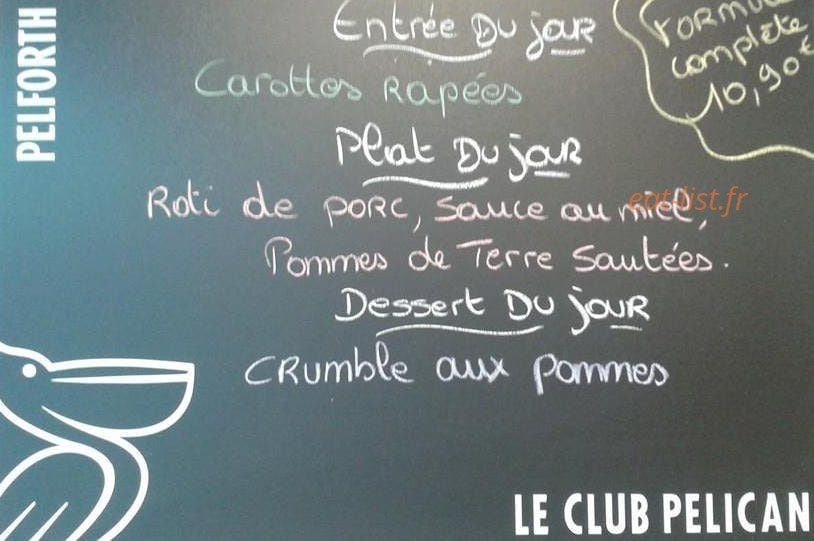 PELFORTH
Entrée Du jour
FORMULE
complète
10,90€
Carottes Rapées
Plat Du jour
Roti de porc, sauce au miel,
eat-list.fr
Pommes de Terre Sautées.
Dessert Du jour
Crumble aux pommes
LE CLUB PELICAN